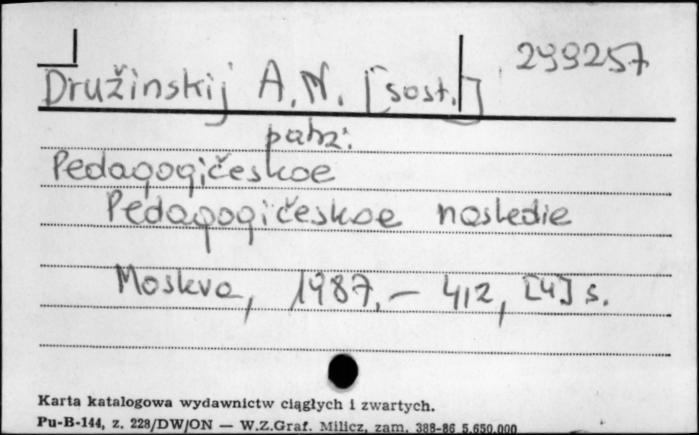 299257
Družinskij A.N. [sost.]
patrz:
Pedagogičeskoe
Pedagogičeskoe nasledie
Moskva, 1987. – 412, [4] s.
Karta katalogowa wydawnictw ciągłych i zwartych.
Pu-B-144, z. 228/DW/ON — W.Z.Graf. Milicz, zam. 388-86 5.650.000